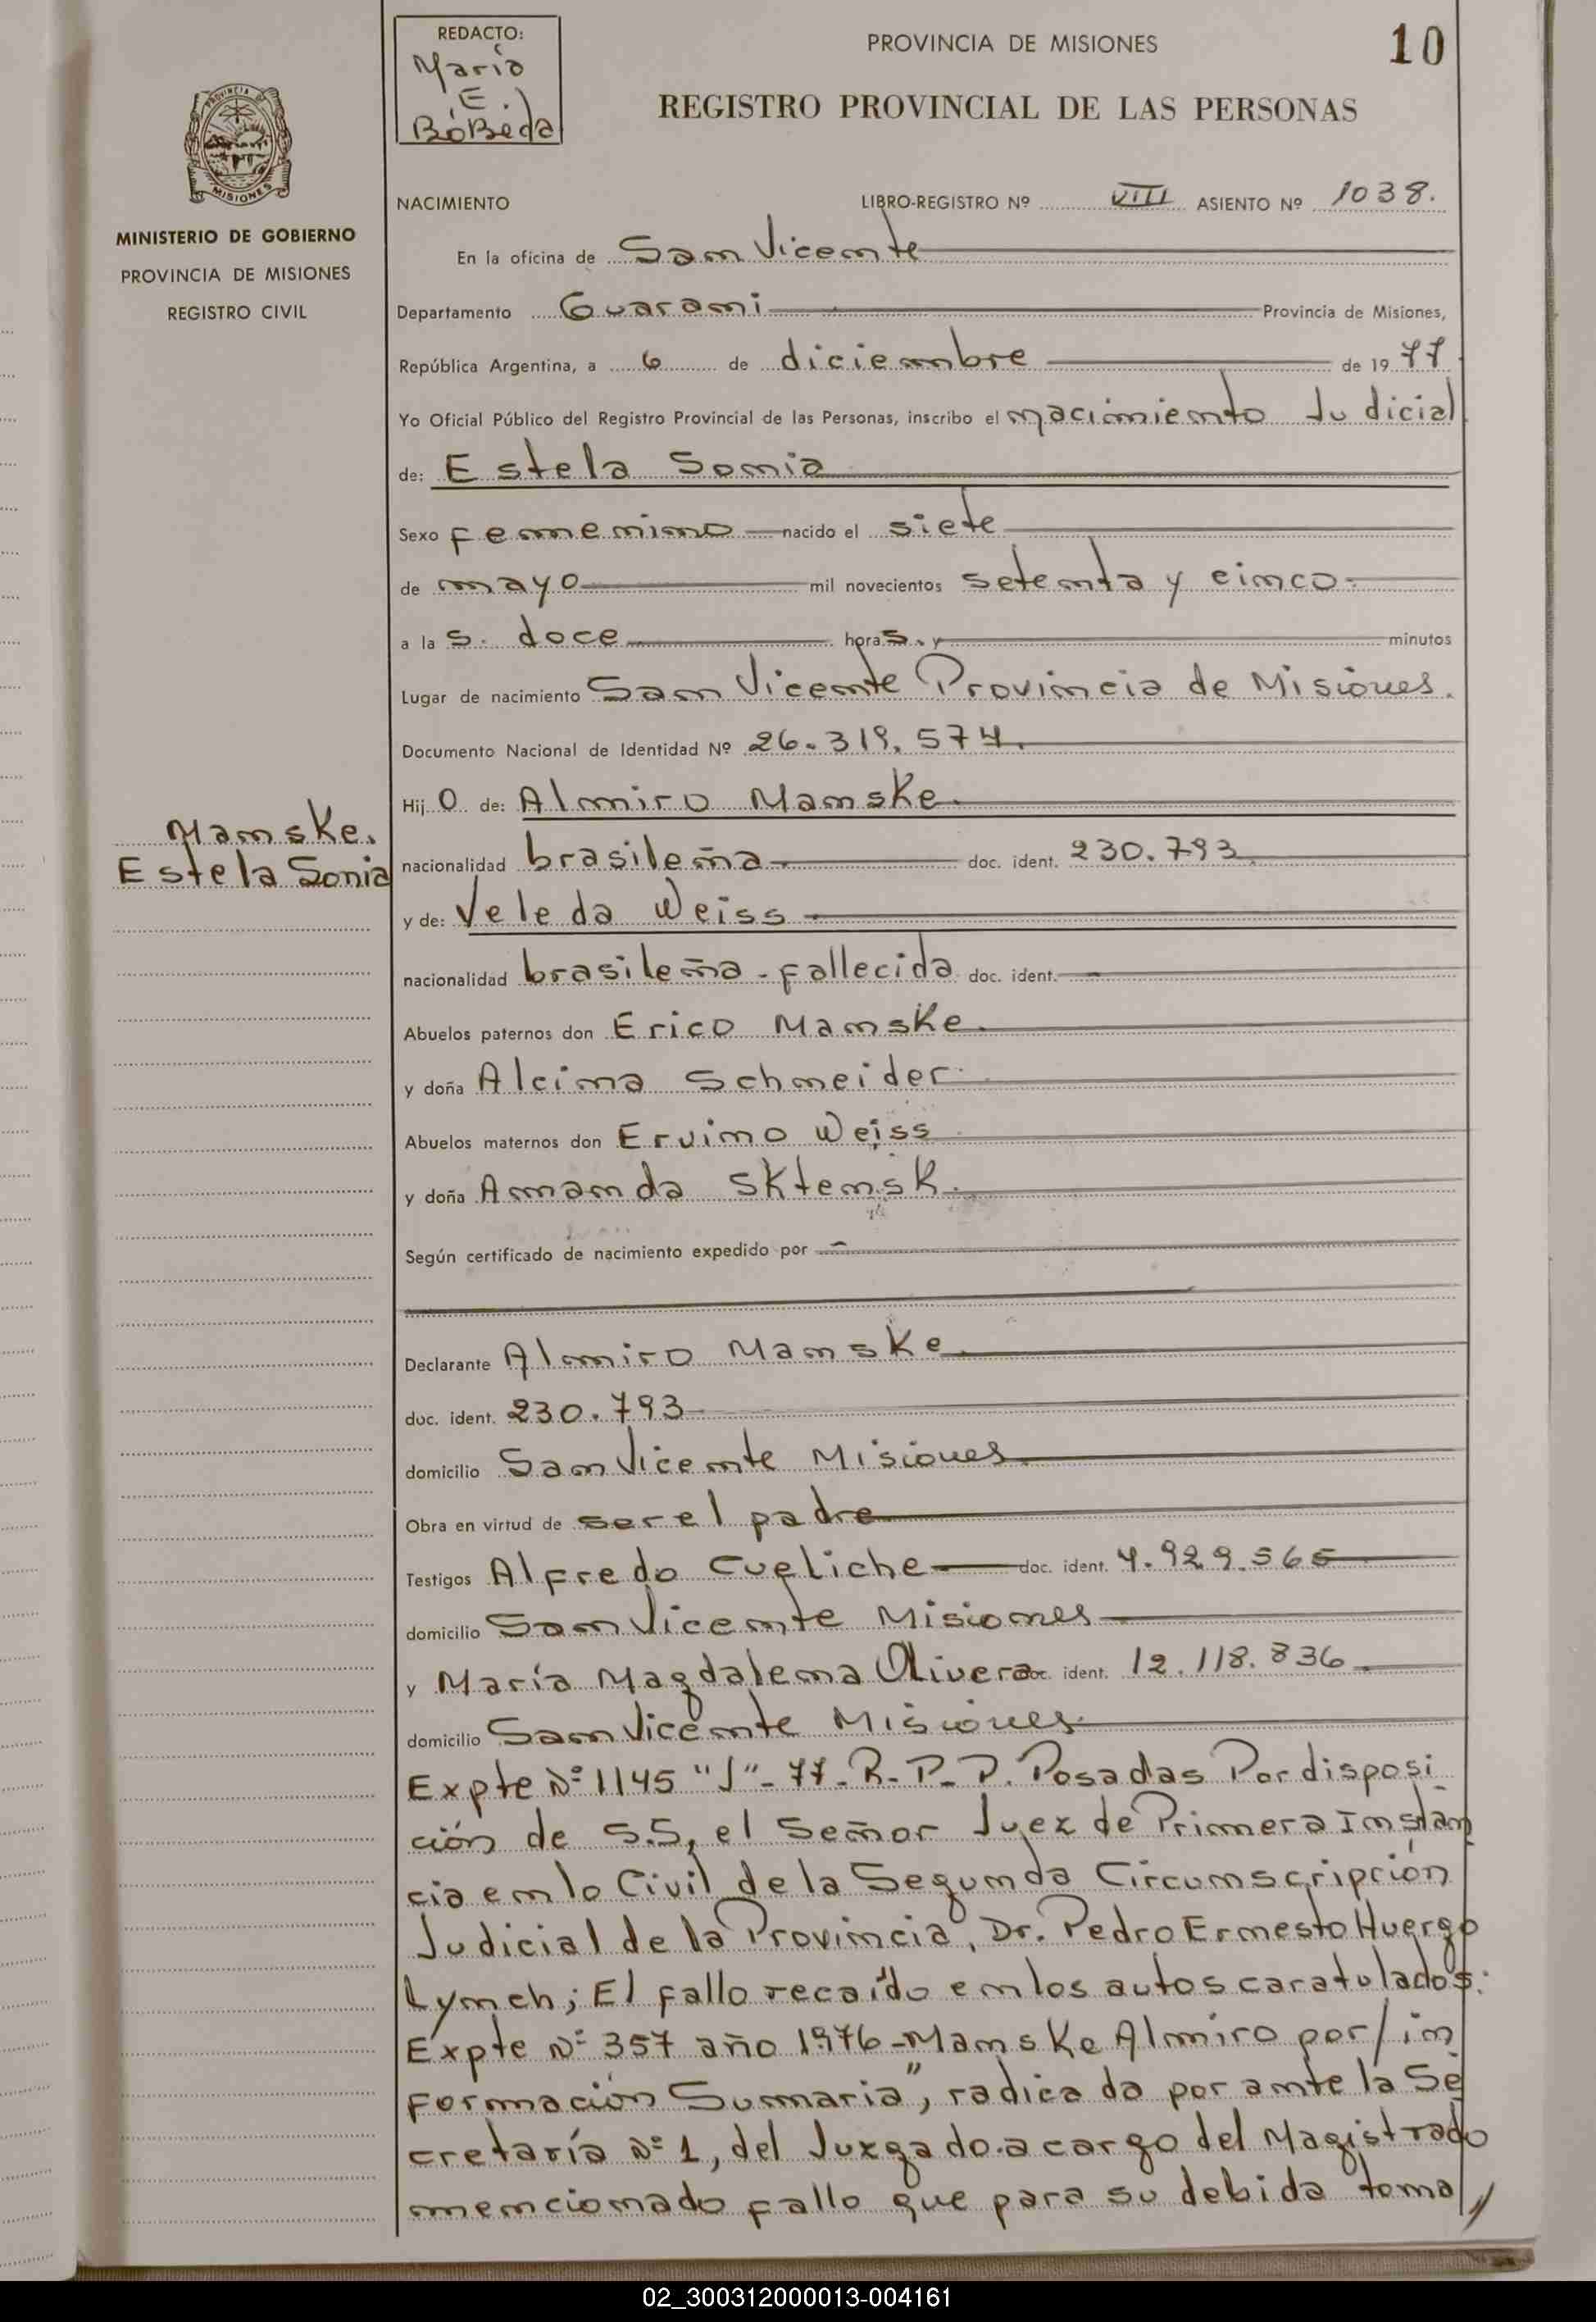 REDACTO:
Mario
E.
BóBeda
PROVINCIA DE MISIONES
10
REGISTRO PROVINCIAL DE LAS PERSONAS
PROVINCIA DE
MISIONES
MINISTERIO DE GOBIERNO
PROVINCIA DE MISIONES
REGISTRO CIVIL
NACIMIENTO LIBRO-REGISTRO Nº VIII ASIENTO Nº 1038.
En la oficina de San Vicente
Departamento Guaraní Provincia de Misiones,
República Argentina, a 6 de diciembre de 1977
Yo Oficial Público del Registro Provincial de las Personas, inscribo el nacimiento Judicial
de: Estela Sonia
Sexo femenino nacido el siete
de mayo mil novecientos setenta y cinco.
a las. doce horas. y minutos
Lugar de nacimiento San Vicente Provincia de Misiones.
Documento Nacional de Identidad Nº 26.319.574.
Hijo de: Almiro Manske.
Manske.
Estela Sonia
nacionalidad brasileña doc. ident. 230.793.
y de: Veleda Weiss
nacionalidad brasileña - fallecida doc. ident. -
Abuelos paternos don Erico Manske.
y doña Alcina Schneider.
Abuelos maternos don Ervino Weiss
y doña Amanda Sktensk.
Según certificado de nacimiento expedido por -
Declarante Almiro Manske.
doc. ident. 230.793
domicilio San Vicente Misiones
Obra en virtud de ser el padre
Testigos Alfredo Cueliche doc. ident. 4.929.565
domicilio San Vicente Misiones
y María Magdalena Olivera doc. ident. 12.118.836.
domicilio San Vicente Misiones
Expte Nº 1145 "J"-77-R.P.P. Posadas Por disposi
ción de S.S, el Señor Juez de Primera Instan
cia en lo Civil de la Segunda Circunscripción
Judicial de la Provincia, Dr. Pedro Ernesto Huergo
Lynch; El fallo recaído en los autos caratulados:
Expte Nº 357 año 1976-Manske Almiro por/in
formación Sumaria", radicado por ante la Se
cretaría Nº 1, del Juzgado.a cargo del Magistrado
mencionado fallo que para su debida toma//
02_300312000013-004161